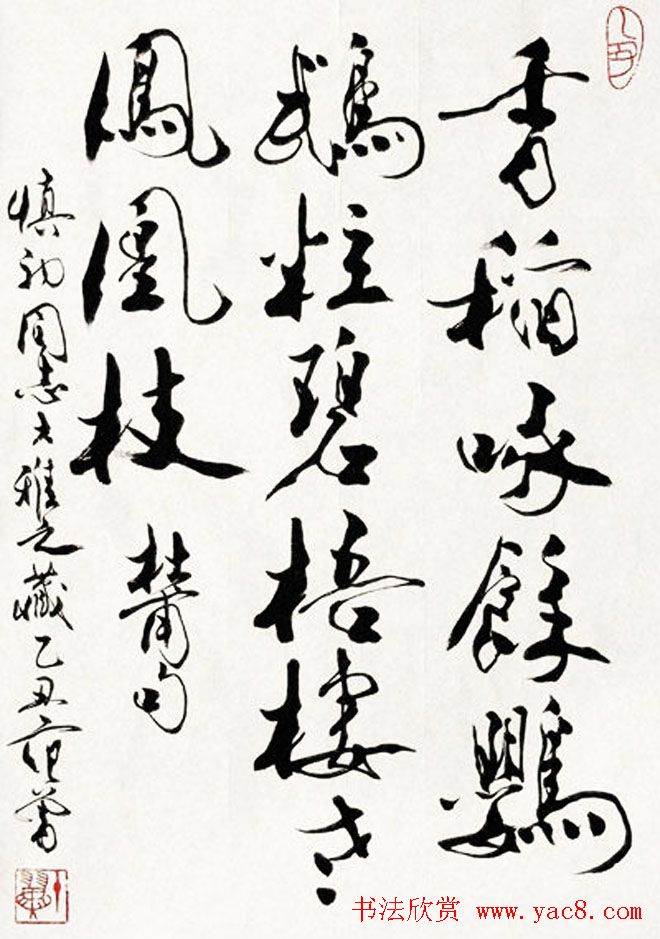 香稻啄餘鸚
鵡粒碧梧棲老
鳳凰枝 杜甫句
慎初同志大雅之藏乙丑范曾
书法欣赏 www.yac8.com